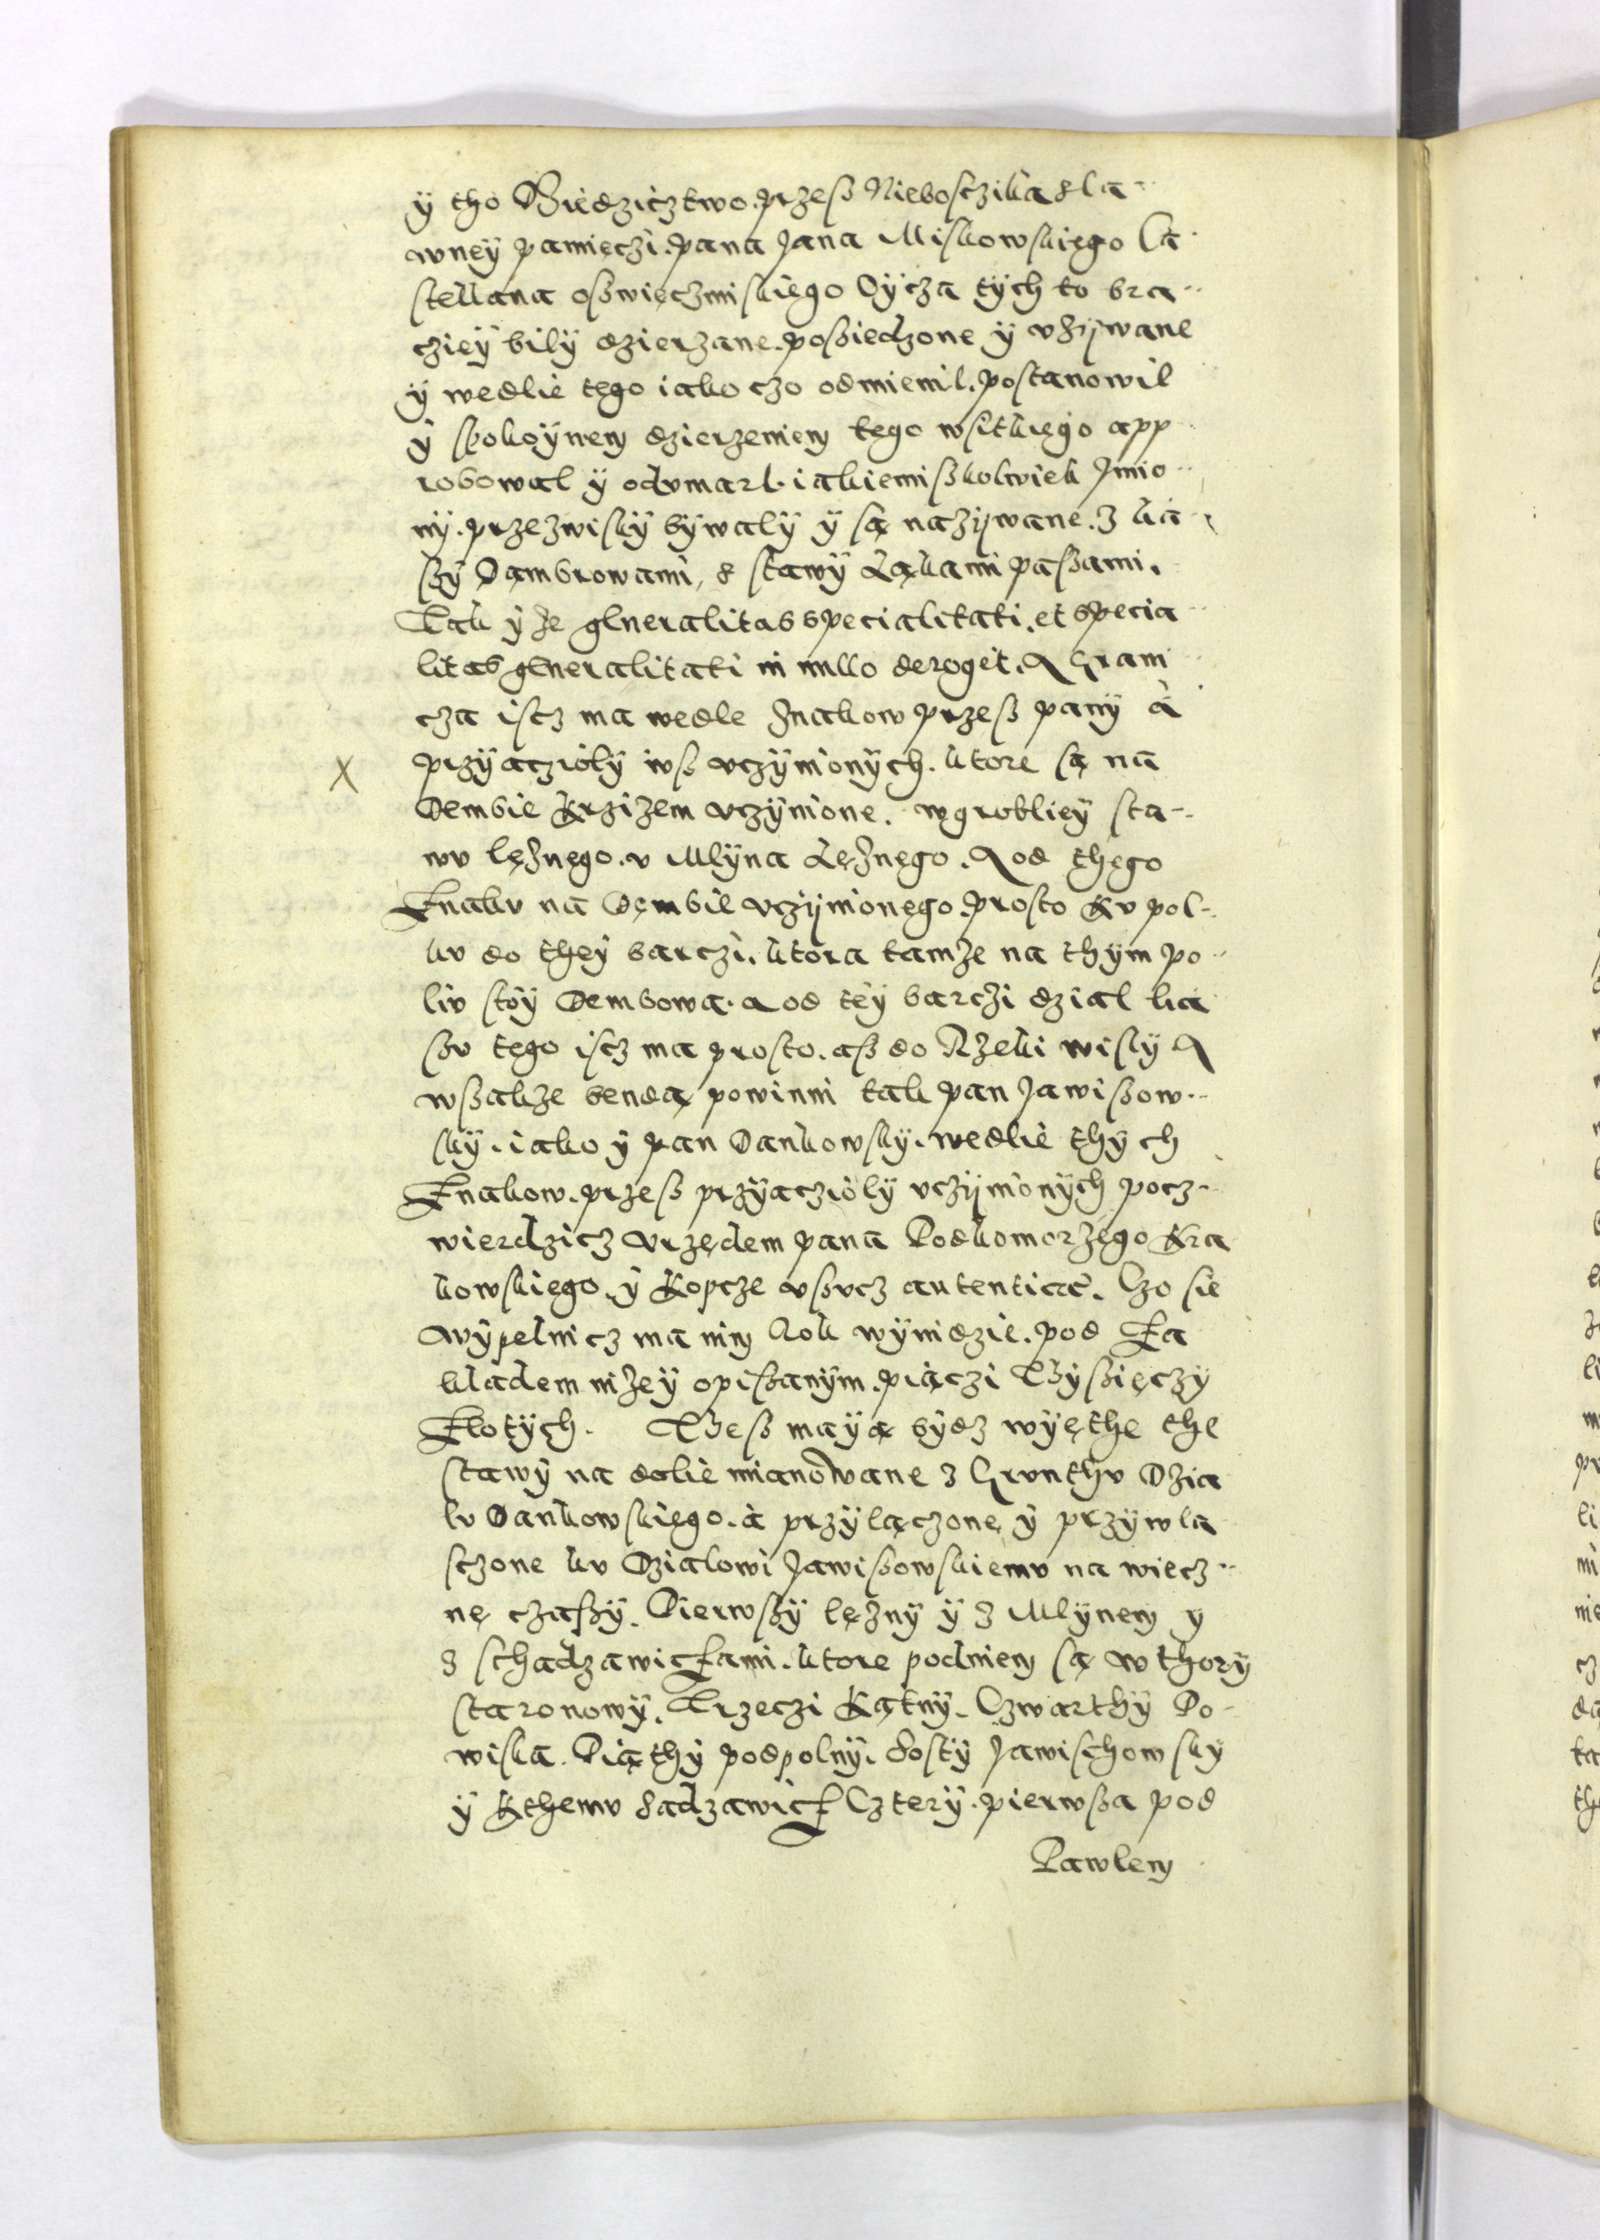 ÿ tho Dziedzicztwo. przesß Niebosczika sla-
wneÿ pamięczi. pana Jana Miskowskiego Ca
stellana osswięczimskiego Oÿcza tÿch to bra-
czieÿ bilÿ dzierzane. possiedzone ÿ vżÿwane
ÿ wedlie tego iako czo odmienil. postanowil
ÿ spokoÿnem dzierzeniem tego wsitkiego app
robowal ÿ odvmarl. iakiemisskolwiek Jmio-
nÿ. przezwiskÿ bÿwalÿ ÿ są nazÿwane. z ka-
ssÿ Dąmbrowami, s stawÿ Ląkami passami.
Tak ÿ że generalitas specialitati. et specia
litas generalitati in nullo deroget. A Grani
cza iscz ma wedle Znakow przesß panÿ à
X przÿacziolÿ ich vczÿnionÿch. ktore są na
Dembie Krziżem vczÿnione. w grobliey sta-
wu lężnego. v Mlÿna Lężnego. A od thego
Znaku na Dęmbie vczÿnionego. prosto Kv pol-
ku do theÿ barczi. ktora tamże na thÿm po-
liv stoÿ Dembowa. a od téÿ barczi dzial ka
ssv tego iscz ma prosto. asß do Rzeki wislÿ A
wssakże bendą powinni tak pan Jawissow-
skÿ. iako ÿ pan Dankowskÿ. wedlie thÿch
Znakow. przesß przÿacziolÿ vczÿnionÿch pocz-
wierdzicz vrzędem pana Podkomorżego Kra
kowskiego. ÿ Kopcze vssvcz autenticae. Czo sie
wÿpelnicz ma nim Rok wÿnidzie. pod Za
kladem niżeÿ opissanÿm. piączi Thÿssięczÿ
Zlotÿch. Thesß maÿą bÿdz wÿęthe the
stawÿ na dolie mianowane z Grvnthv Dzia
lv Dankowskiego. à przÿlączone ÿ przÿwla
sczone kv Dzialowi Jawissowskiemv na wiecz-
nę czassÿ. Pierwssÿ lężnÿ ÿ z Mlÿnem y
z schadzawiczami. ktore podniem są w thorÿ
staronowÿ. Trzeczi Kątnÿ. Czwarthÿ Po-
wiska. Piąthÿ podpolnÿ. sostÿ Jawischowskÿ
ÿ Kthemv sadzawicz Czterÿ. pierwssa pod
Pawlem